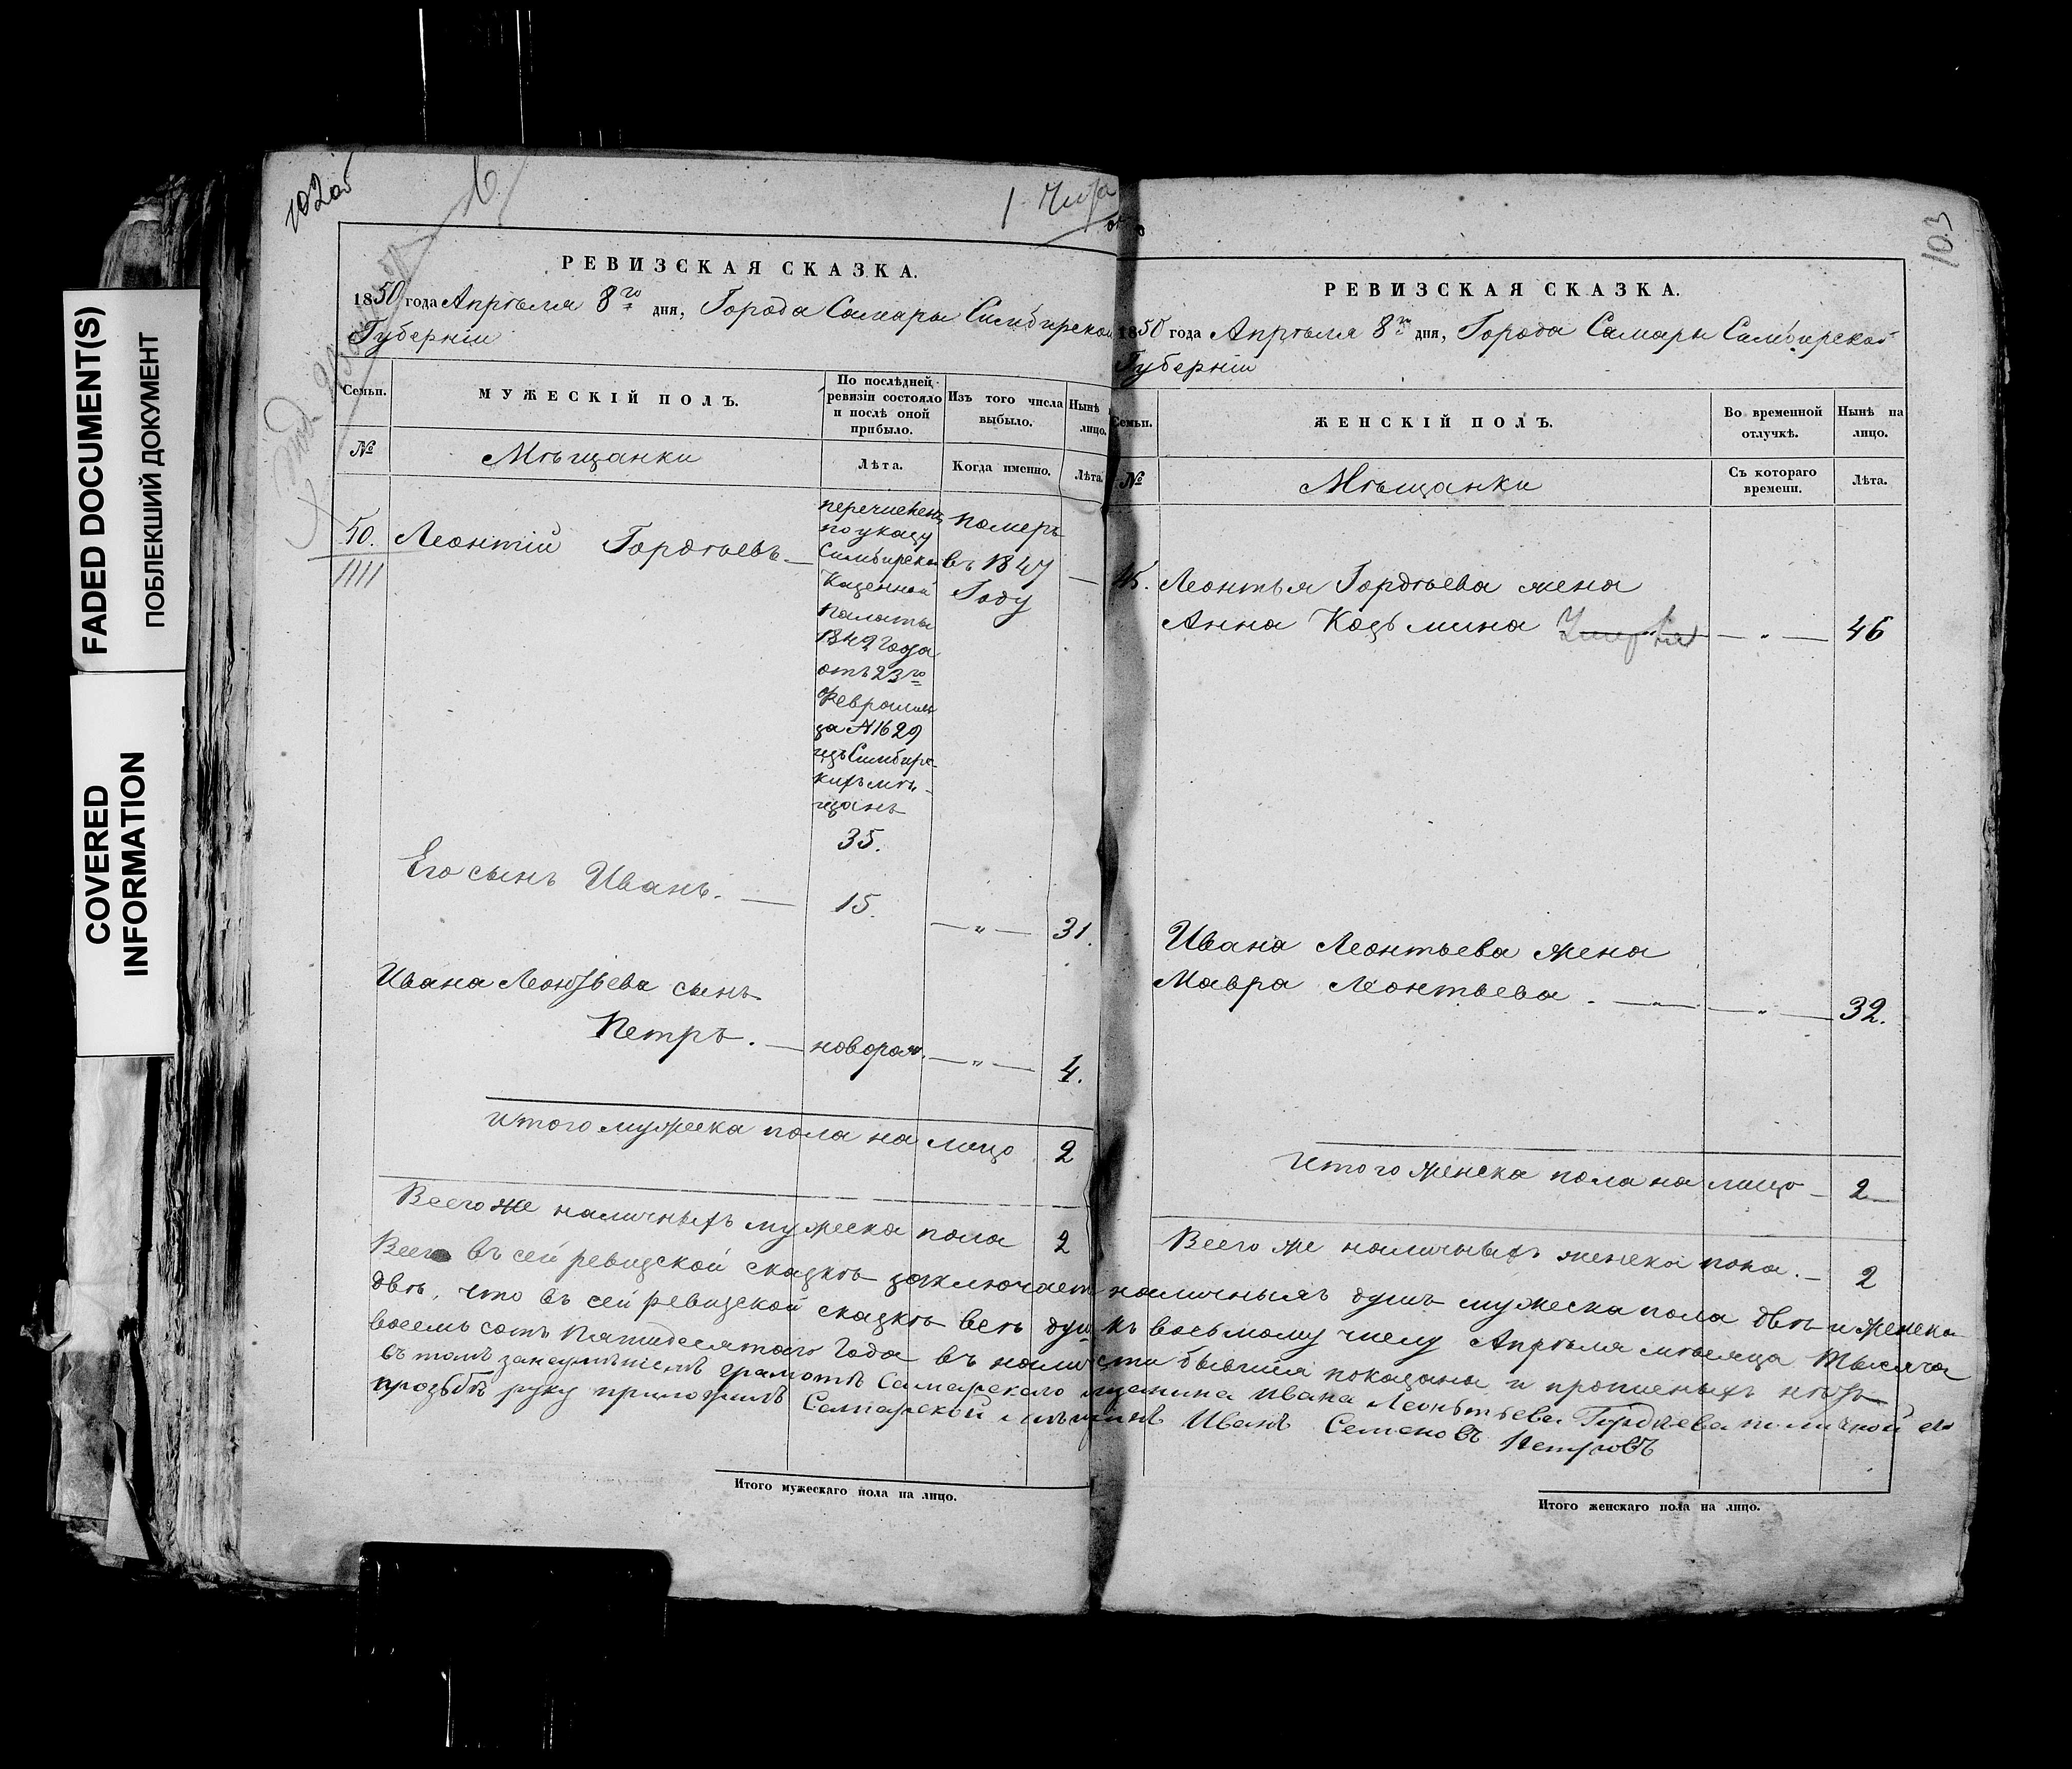 FADED DOCUMENT(S)
ПОБЛЕКШИЙ ДОКУМЕНТ
COVERED INFORMATION
102об
РЕВИЗСКАЯ СКАЗКА.
1850 года Апрѣля 8го дня, Города Самары Симбирской
Губерніи
Семьи.
МУЖЕСКІЙ ПОЛЪ.
По послѣдней
ревизіи состояло
и послѣ оной
прибыло.
Изъ того числа
выбыло.
Нынѣ
лицо.
№
Мѣщанки
Лѣта.
Когда именно.
Лѣта.
50. Леонтій Гордѣевъ
1111
перечисленъ
по указу
Симбирской
Казенной
Палаты
1842 года
отъ 23го
Февраля
за №1629
изъ Симбирс-
кихъ мѣ-
щанъ
35.
померъ
въ 1847
Году
Его сынъ Иванъ. — 15. — „ — 31.
Ивана Леонтьева сынъ
Петръ. — новорож. — „ — 4.
Итого мужеска пола на лицо 2
Всего же наличныхъ мужеска пола 2
103
РЕВИЗСКАЯ СКАЗКА.
1850 года Апрѣля 8го дня, Города Самары Симбирской
Губерніи
Семьи.
ЖЕНСКІЙ ПОЛЪ.
Во временной
отлучкѣ.
Нынѣ на
лицо.
№
Мѣщанки
Съ котораго
времени.
Лѣта.
Леонтья Гордѣева жена
Анна Козьмина — „ — 46
Ивана Леонтьева жена
Мавра Леонтьева. — „ — — „ — 32.
Итого женска пола на лицо — 2
Всего же наличныхъ женска пола. — 2
Всего въ сей ревизской сказкѣ заключается наличныхъ душъ мужеска пола двѣ и женска
двѣ, что въ сей ревизской сказкѣ всѣ душ къ восьмому числу Апрѣля мѣсяца тысяча
восемь сотъ Пятидесятаго Года въ наличности бывшія показаны и прописныхъ нѣтъ
въ томъ за неумѣніемъ грамотѣ Самарскаго мѣщанина Ивана Леонтьева Гордѣева по личной его
прозьбѣ руку приложилъ Самарской мѣщанинъ Иванъ Семеновъ Петровъ
Итого мужескаго пола на лицо.
Итого женскаго пола на лицо.